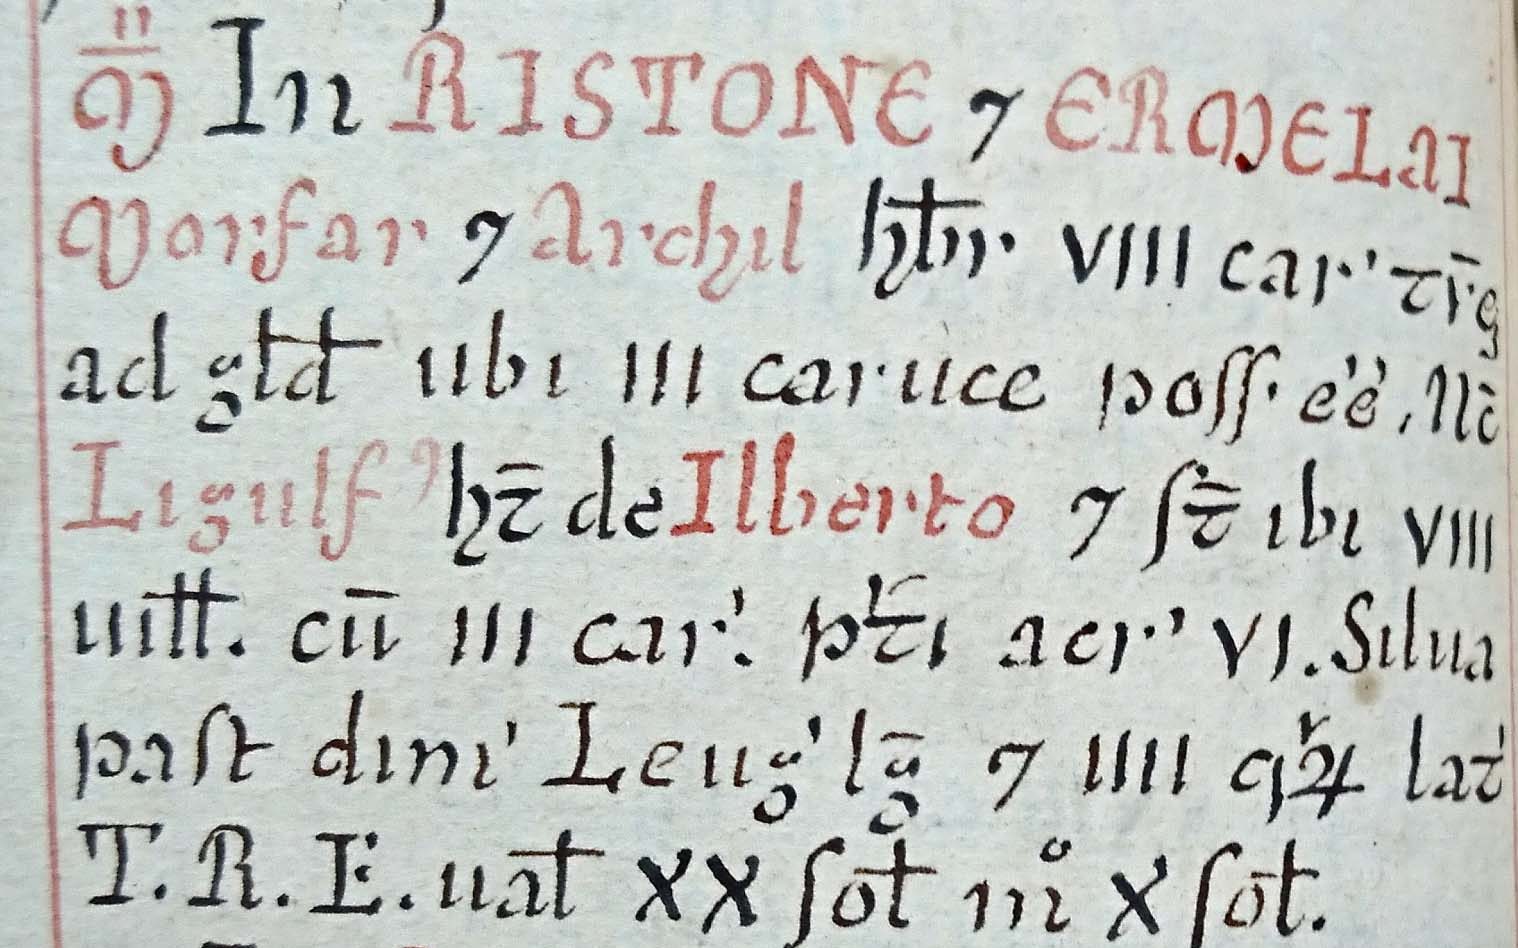 M̄ In RISTONE ⁊ ERMELAI
Morfar ⁊ Archil hƀr VIII car' tr̄g
ad gld̄ ubi III caruce poss. e'e'. Nc̄
Ligulf' ht̄ de Ilberto ⁊ st̄ ibi VIII
uiłł. cū III car'. p̃ti acr' VI. Silua
past dim' Leug' lḡ ⁊ IIII qr̃ꝝ lat'
T.R.E. uał XX soł m° X soł.